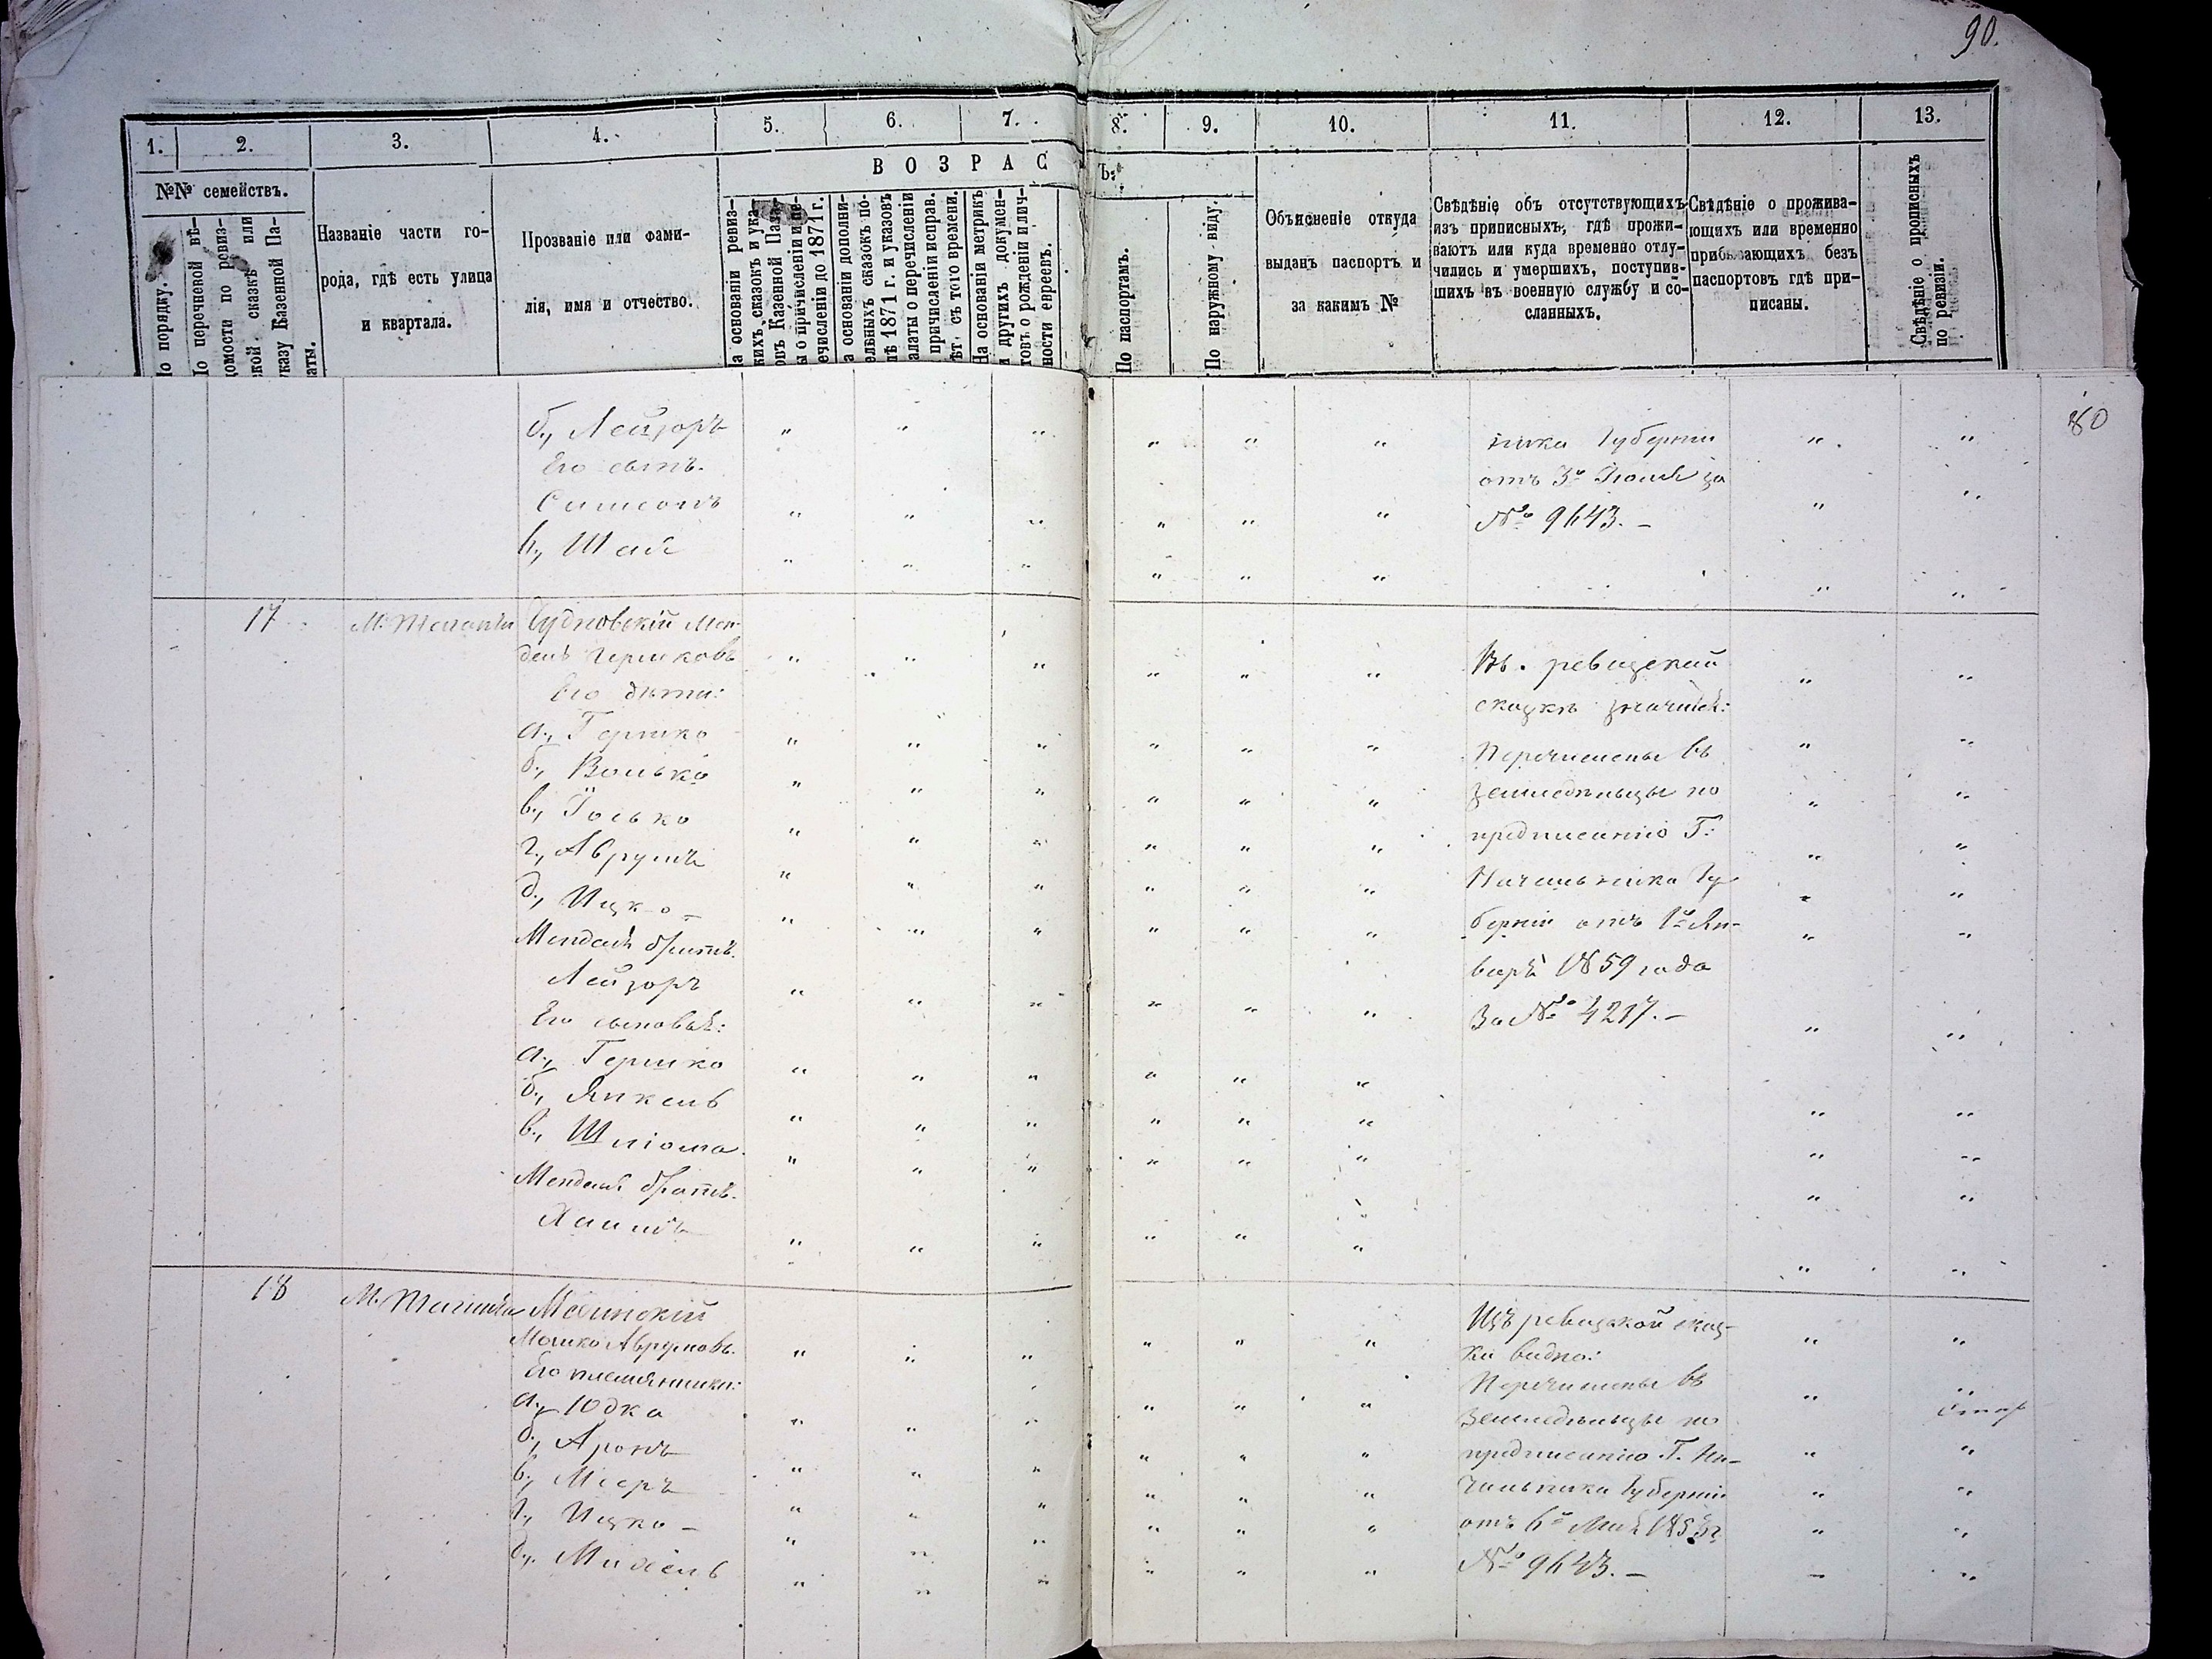 90.
1. 2. 3. 4. 5. 6. 7. 8. 9. 10. 11. 12. 13.
ВОЗРАСТЪ:
№№ семействъ.
По порядку.
По перечневой вѣ-
домости по ревиз-
ской сказкѣ или
указу Казенной Па-
латы.
Названіе части го-
рода, гдѣ есть улица
и квартала.
Прозваніе или фами-
лія, имя и отчество.
На основаніи ревиз-
скихъ сказокъ и ука-
зовъ Казенной Пала-
ты о причисленіи и пе-
речисленіи до 1871 г.
На основаніи дополни-
тельныхъ сказокъ по-
слѣ 1871 г. и указовъ
Палаты о перечисленіи
и причисленіи исправ.
лѣт. съ того времени.
На основаніи метрикъ
и другихъ докумен-
товъ о рожденіи лич-
ности евреевъ.
По паспортамъ.
По наружному виду.
Объясненіе откуда
выданъ паспортъ и
за какимъ №
Свѣдѣніе объ отсутствующихъ
изъ приписныхъ, гдѣ прожи-
ваютъ или куда временно отлу-
чились и умершихъ, поступив-
шихъ въ военную службу и со-
сланныхъ.
Свѣдѣніе о прожива-
ющихъ или временно
прибывающихъ безъ
паспортовъ гдѣ при-
писаны.
Свѣдѣніе о прописныхъ
по ревизіи.
80
б., Лейзоръ
Его сынъ.
Симсонъ
в., Шая
ника Губерніи
отъ 3го Іюля за
№ 9643. –
17
Чудновскій Мен-
дель Гершковъ
Его дѣти:
а., Гершко
б., Волько
в., Іосько
г., Аврумъ
д., Ицко
Менделя братъ.
Лейзоръ
Его сыновья:
а., Гершко
б., Янкель
в., Шліома
Менделя братъ.
Хаимъ
Въ ревизской
сказкѣ значится:
Перечислены въ
земледѣльцы по
предписанію Г.
Начальника Гу-
берніи отъ 1го Ян-
варя 1859 года
За № 4217. –
18
Мошко Аврумовъ.
Его племянники:
а., Юдка
б., Аронъ
в., Мееръ
г., Ицко –
д., Михель
Изъ ревизской сказ-
ки видно:
Перечислены въ
земледѣльцы по
предписанію Г. На-
чальника Губерніи
отъ 6го Мая
№ 9643. –